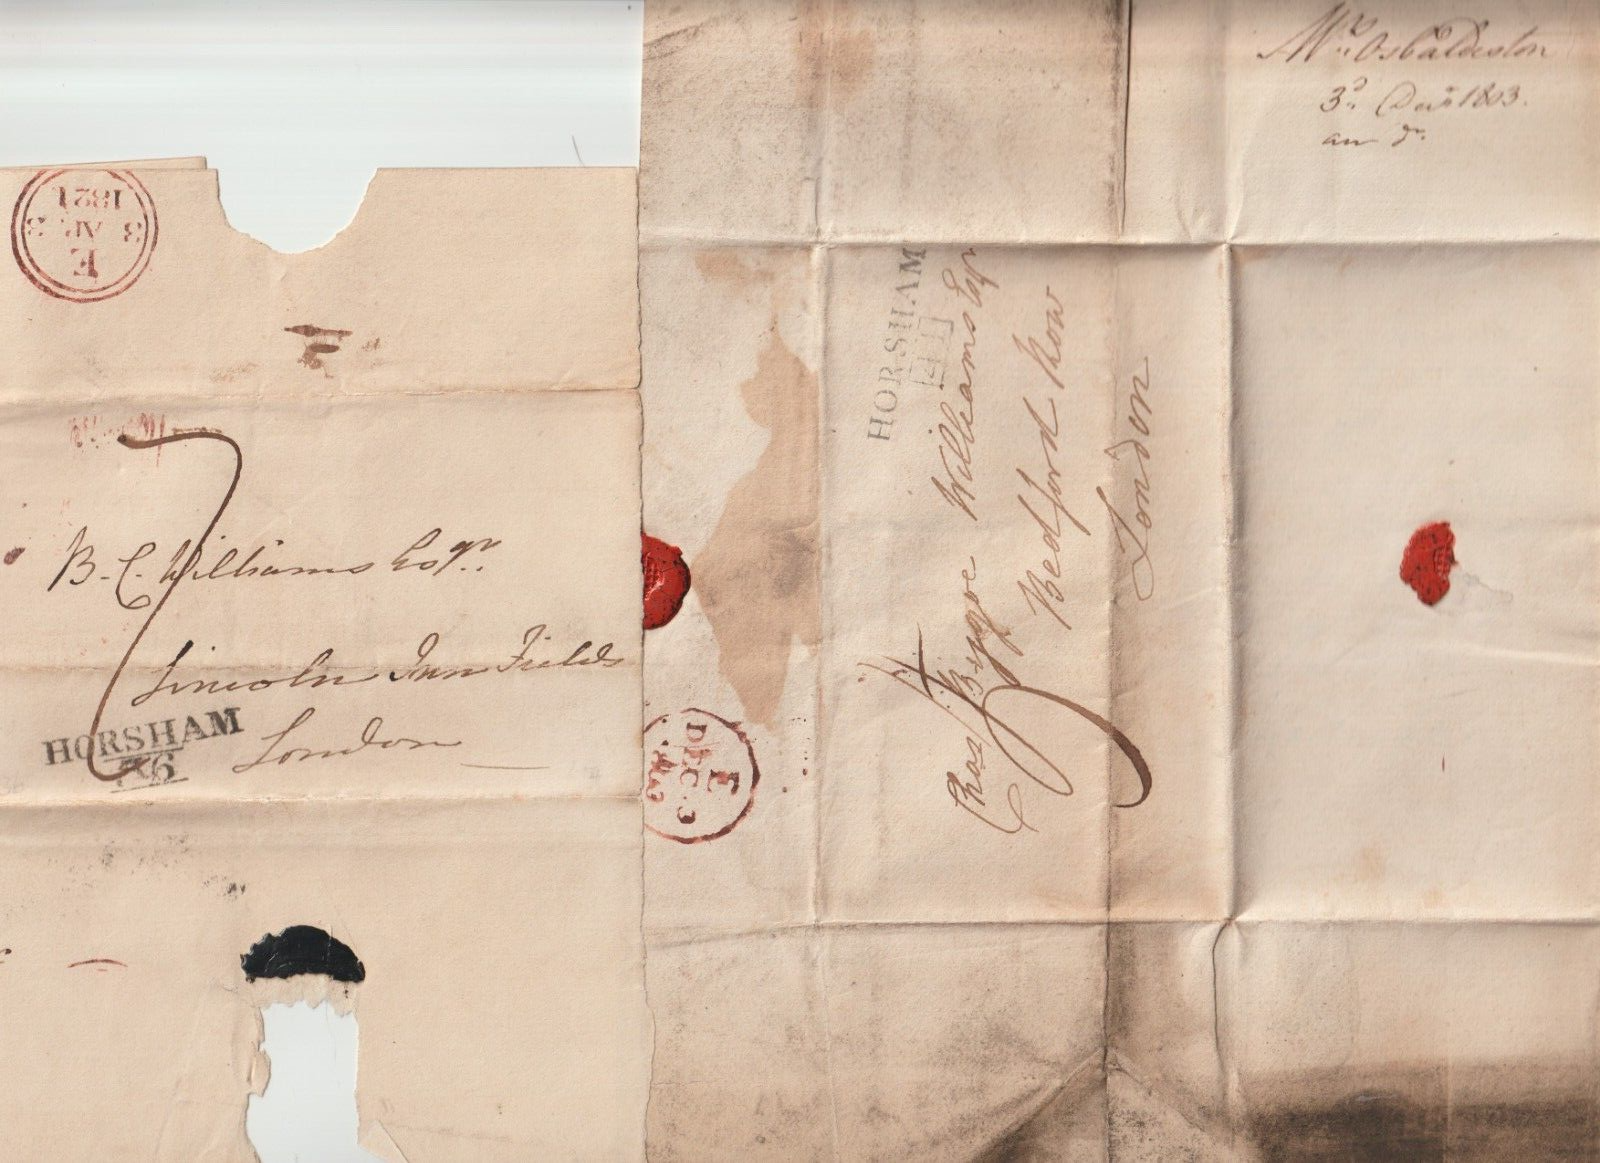 1821
3 AP 3
E
7
B. C. Williams Esqr.
Lincoln Inn Fields
London
HORSHAM
36
Mrs. Osbaldeston
3d. Decr. 1803.
an dr.
HORSHAM
41
Chas Bigge Williams Esqr
Bedford Row
London
E
DEC 3
803